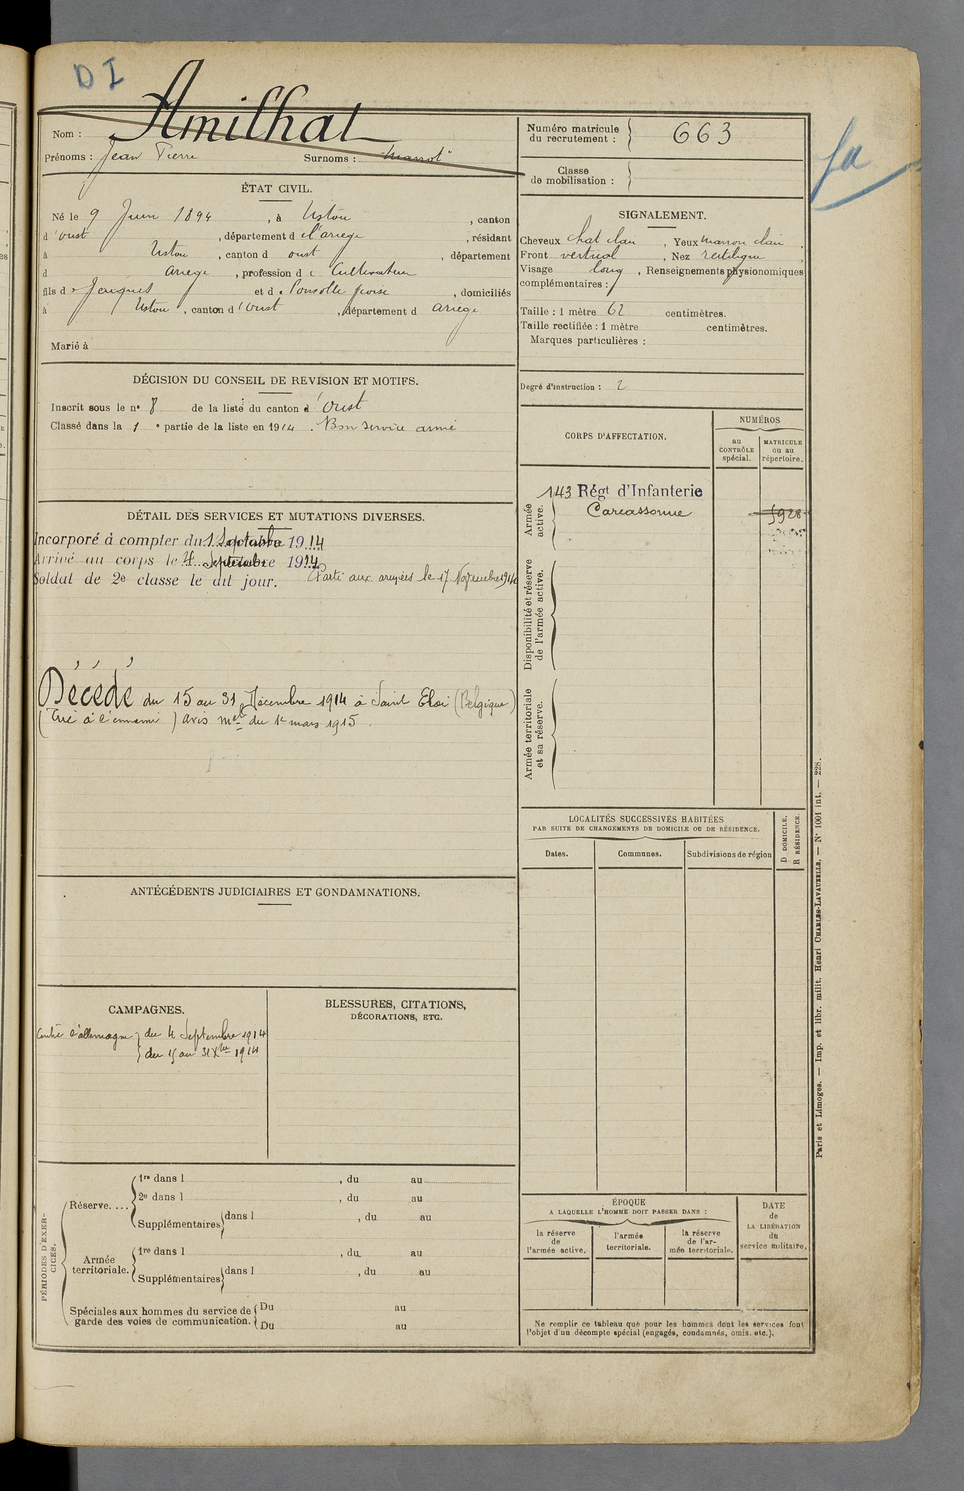 D I
Nom : Amilhat
Prénoms : Jean Pierre Surnoms : "Marrot"
Numéro matricule
du recrutement : 663
Classe
de mobilisation :
ÉTAT CIVIL.
Né le 9 Juin 1894, à Ustou, canton
d'oust, département de l'ariege, résidant
à Ustou, canton d oust, département
d Ariege, profession de Cultivateur
fils de Jacques et de, domiciliés
à Ustou, canton d'oust, département d ariege
Marié à
SIGNALEMENT.
Cheveux chat clair, Yeux marron clair,
Front vertical, Nez rectiligne,
Visage long, Renseignements physionomiques
complémentaires :
Taille : 1 mètre 62 centimètres.
Taille rectifiée : 1 mètre centimètres.
Marques particulières :
Degré d'instruction : 2
DÉCISION DU CONSEIL DE REVISION ET MOTIFS.
Inscrit sous le n° 8 de la liste du canton d'oust
Classé dans la 1e partie de la liste en 1914. Bon service armé
DÉTAIL DES SERVICES ET MUTATIONS DIVERSES.
Incorporé à compter du 1 Septembre 1914
Arrivé au corps le 4 Septembre 1914
Soldat de 2e classe le dit jour. Parti aux armées le 17 Novembre 1914
Décédé du 15 au 31 Décembre 1914 à Saint Eloi (Belgique)
(Tué à l'ennemi) avis mel du 1r mars 1915.
CORPS D'AFFECTATION.
NUMÉROS
au
CONTRÔLE
spécial.
MATRICULE
ou au
répertoire.
Armée
active.
143 Régt d'Infanterie
Carcassonne
5928
Disponibilité et réserve
de l'armée active.
Armée territoriale
et sa réserve.
LOCALITÉS SUCCESSIVES HABITÉES
PAR SUITE DE CHANGEMENTS DE DOMICILE OU DE RÉSIDENCE.
Dates.
Communes.
Subdivisions de région
D DOMICILE.
R RÉSIDENCE.
ANTÉCÉDENTS JUDICIAIRES ET CONDAMNATIONS.
CAMPAGNES.
Contre l'allemagne } du 4 Septembre 1914
} du 15 au 31 Xbre 1914
BLESSURES, CITATIONS,
DÉCORATIONS, ETC.
PÉRIODES D'EXER-
CICES.
Réserve....
1re dans l , du au
2e dans l , du au
Supplémentaires dans l , du au
Armée
territoriale.
1re dans l , du au
Supplémentaires dans l , du au
Spéciales aux hommes du service de
garde des voies de communication.
Du au
Du au
ÉPOQUE
A LAQUELLE L'HOMME DOIT PASSER DANS :
la réserve
de
l'armée active.
l'armée
territoriale.
la réserve
de l'ar-
mée territoriale.
DATE
de
LA LIBÉRATION
du
service militaire.
Ne remplir ce tableau que pour les hommes dont les services font
l'objet d'un décompte spécial (engagés, condamnés, omis, etc.).
Paris et Limoges. — Imp. et libr. milit. Henri CHARLES-LAVAUZELLE. — N° 1001 int. — 228.